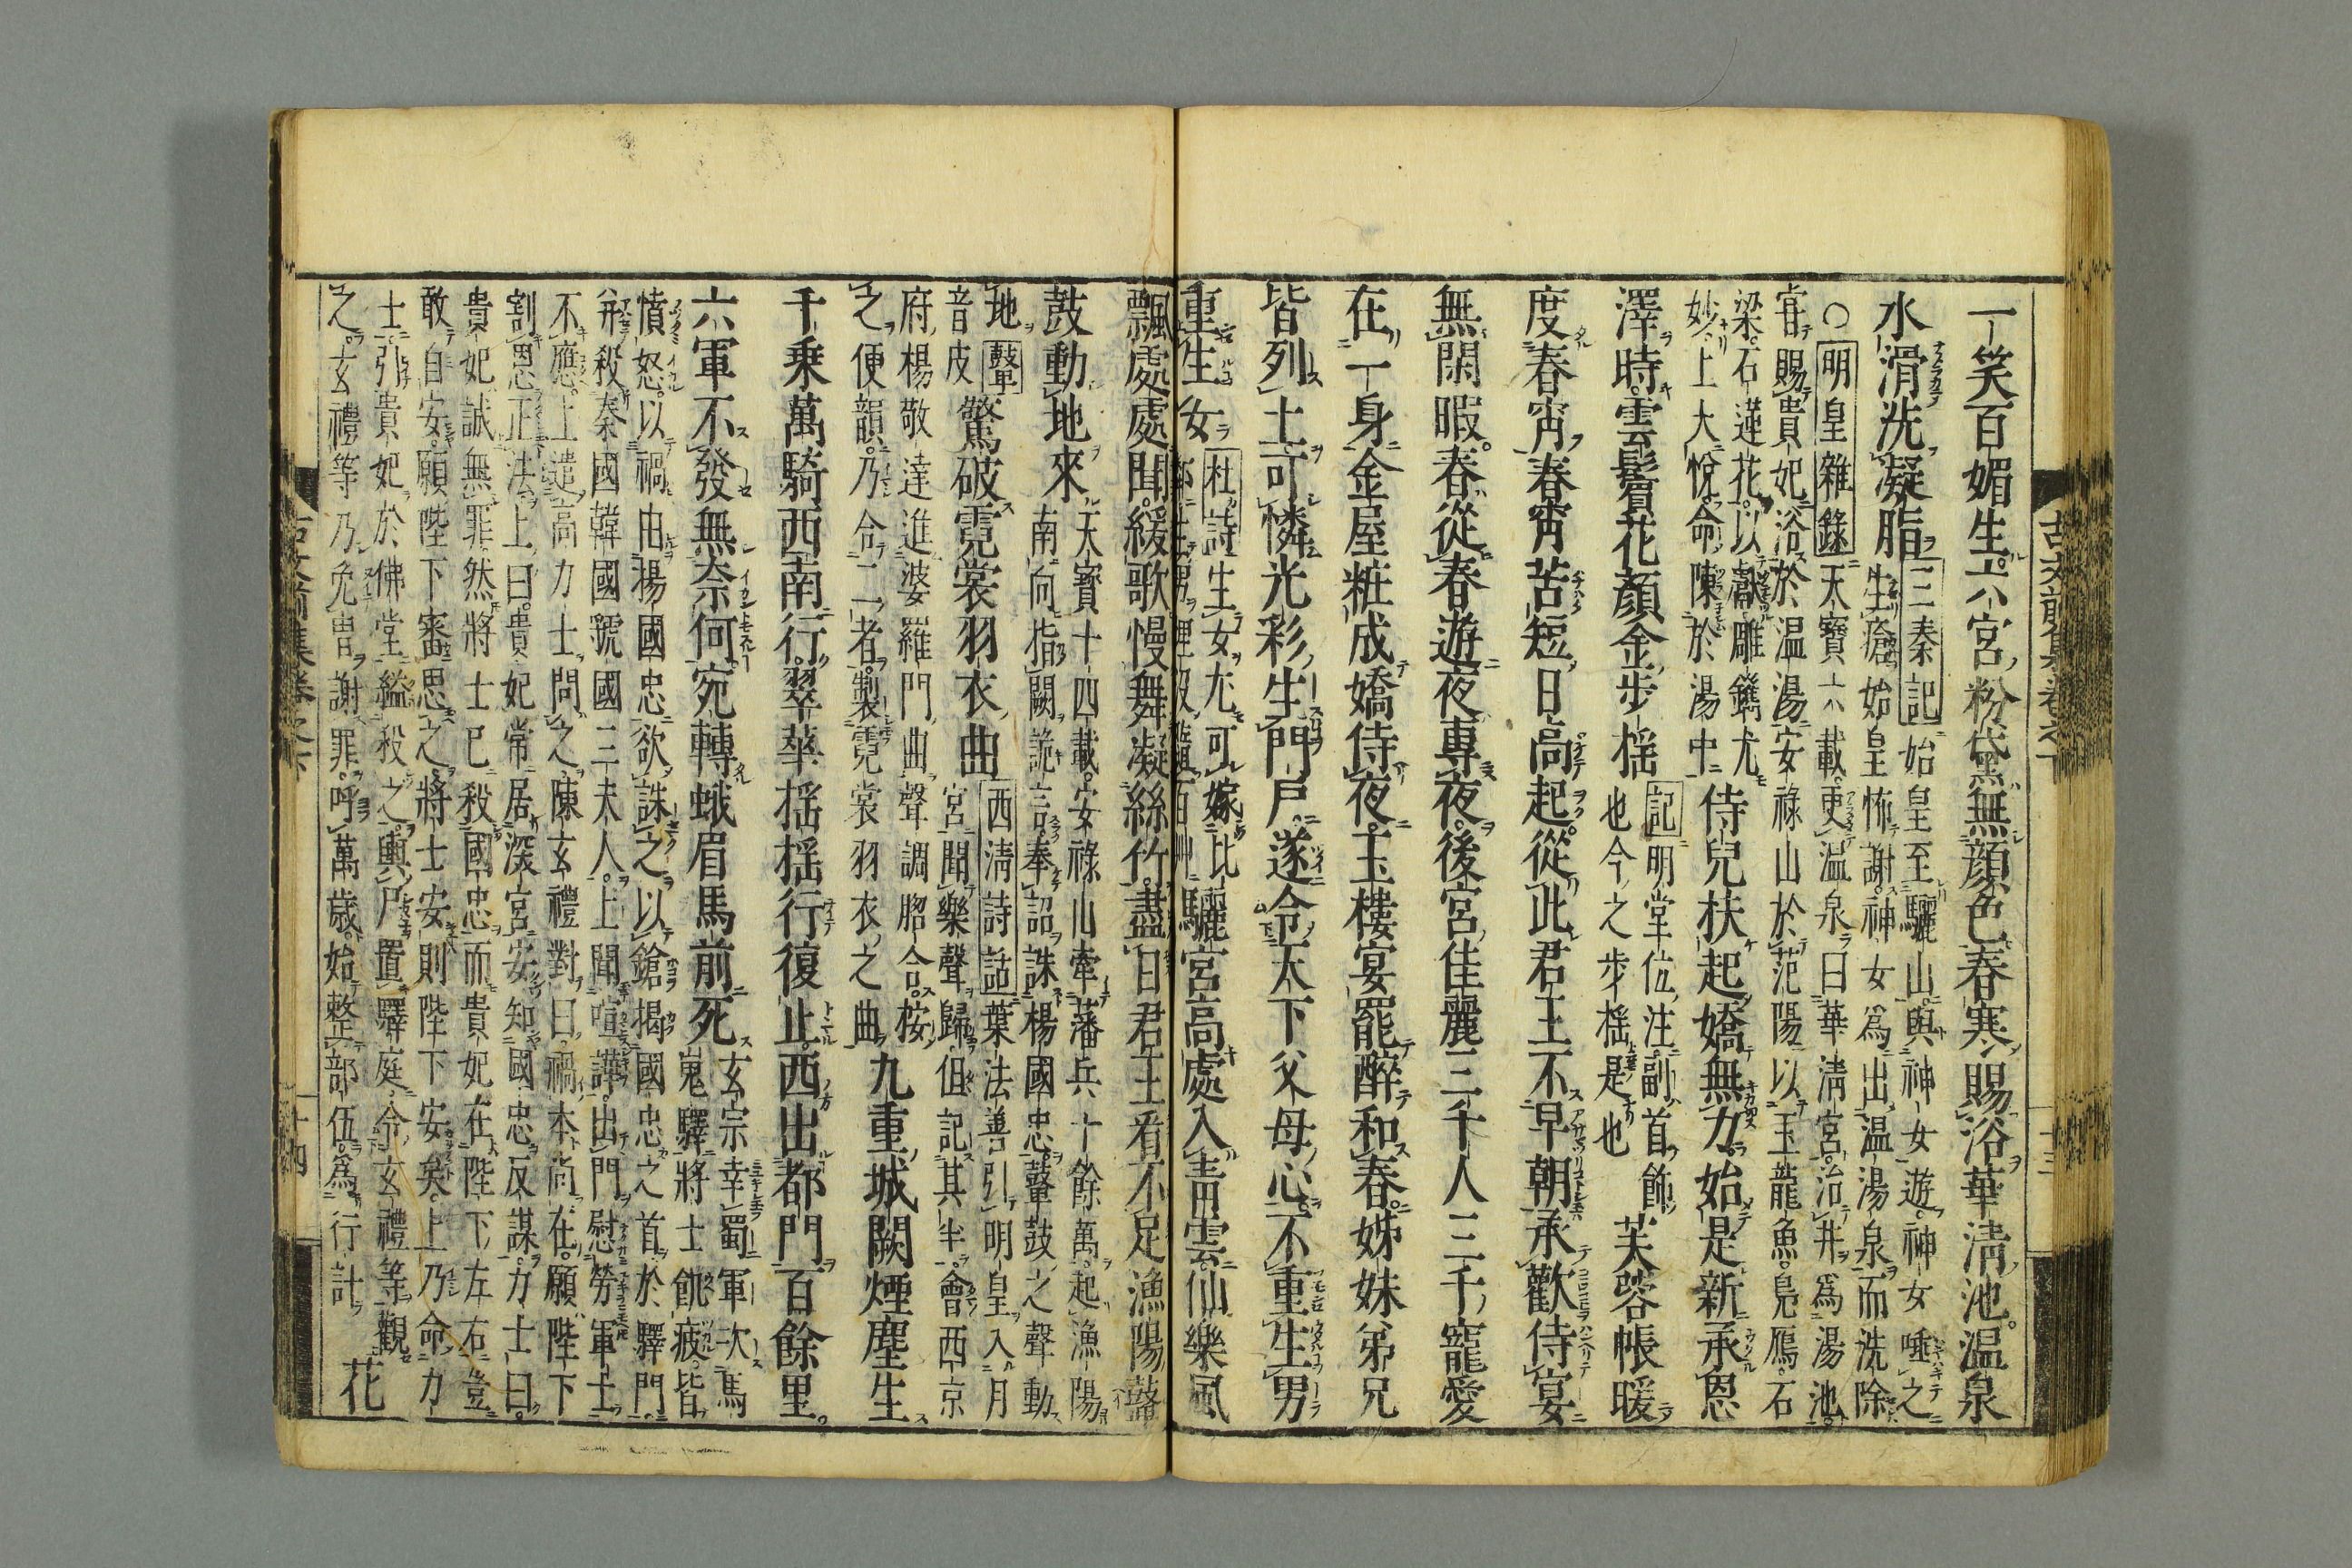 一笑百媚生六宮粉黛無顔色春寒賜浴華淸池温泉
水滑洗凝脂
三秦記始皇至驪山與神女遊神女唾之
生瘡始皇怖謝神女爲出温湯泉而洗除
○明皇雜錄天寶六載更温泉曰華淸宮治井爲湯池
甞賜貴妃浴於温湯安祿山於范陽以玉龍魚鳬鴈石
梁石蓮花以獻雕鐫尤
妙上大悅命陳於湯中
侍兒扶起嬌無力始是新承恩
澤時雲鬢花顔金步搖
記明堂位注副首飾
也今之步搖是也
芙蓉帳暖
度春宵春宵苦短日高起從此君王不早朝承歡侍宴
無閑暇春從春遊夜專夜後宮佳麗三千人三千寵愛
在一身金屋粧成嬌侍夜玉樓宴罷醉和春姊妹弟兄
皆列土可憐光彩生門戶遂令天下父母心不重生男
重生女
杜詩生女尤可嫁比
驪宮高處入靑雲仙樂風
飄處處聞緩歌慢舞凝絲竹盡日君王看不足漁陽鼙
鼓動地來
天寶十四載安祿山牽藩兵十餘萬起漁陽
南向指闕詭言奉詔誅楊國忠鼙鼓之聲動
地鼙
音皮
驚破霓裳羽衣曲
西淸詩話葉法善引明皇入月
宮聞樂聲歸但記其半會西京
府楊敬達進婆羅門曲聲調脗合按
之便韻乃合二者製霓裳羽衣之曲
九重城闕煙塵生
千乗萬騎西南行翠華搖搖行復止西出都門百餘里
六軍不發無奈何宛轉蛾眉馬前死
玄宗幸蜀軍次馬
嵬驛將士飢疲皆
憤怒以禍由楊國忠欲誅之以鎗揭國忠之首於驛門
并殺秦國韓國虢國三夫人上聞喧譁出門慰勞軍士
不應上遣高力士問之陳玄禮對曰禍本尙在願陛下
割恩正法上曰貴妃常居深宮安知國忠反謀力士曰
貴妃誠無罪然將士已殺國忠而貴妃在陛下左右豈
敢自安願陛下審思之將士安則陛下安矣上乃命力
士引貴妃於佛堂縊殺之輿尸置驛庭令玄禮等觀
之玄禮等乃免冑謝罪呼萬歲始整部伍爲行計
花
古文前集卷之下
十三
古文前集卷之下
十四